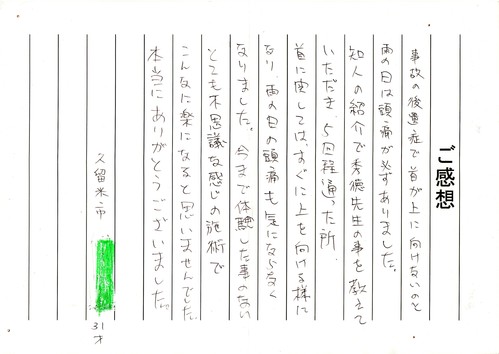 ご感想
事故の後遺症で首が上に向けないのと
雨の日は頭痛が必ずありました。
知人の紹介で秀徳先生の事を教えて
いただき、5回程通った所、
首に関しては、すぐに上を向ける様に
なり、雨の日の頭痛も気にならなく
なりました。今まで体験した事のない
とても不思議な感じの施術で
こんなに楽になると思いませんでした。
本当にありがとうございました。
久留米市
31才